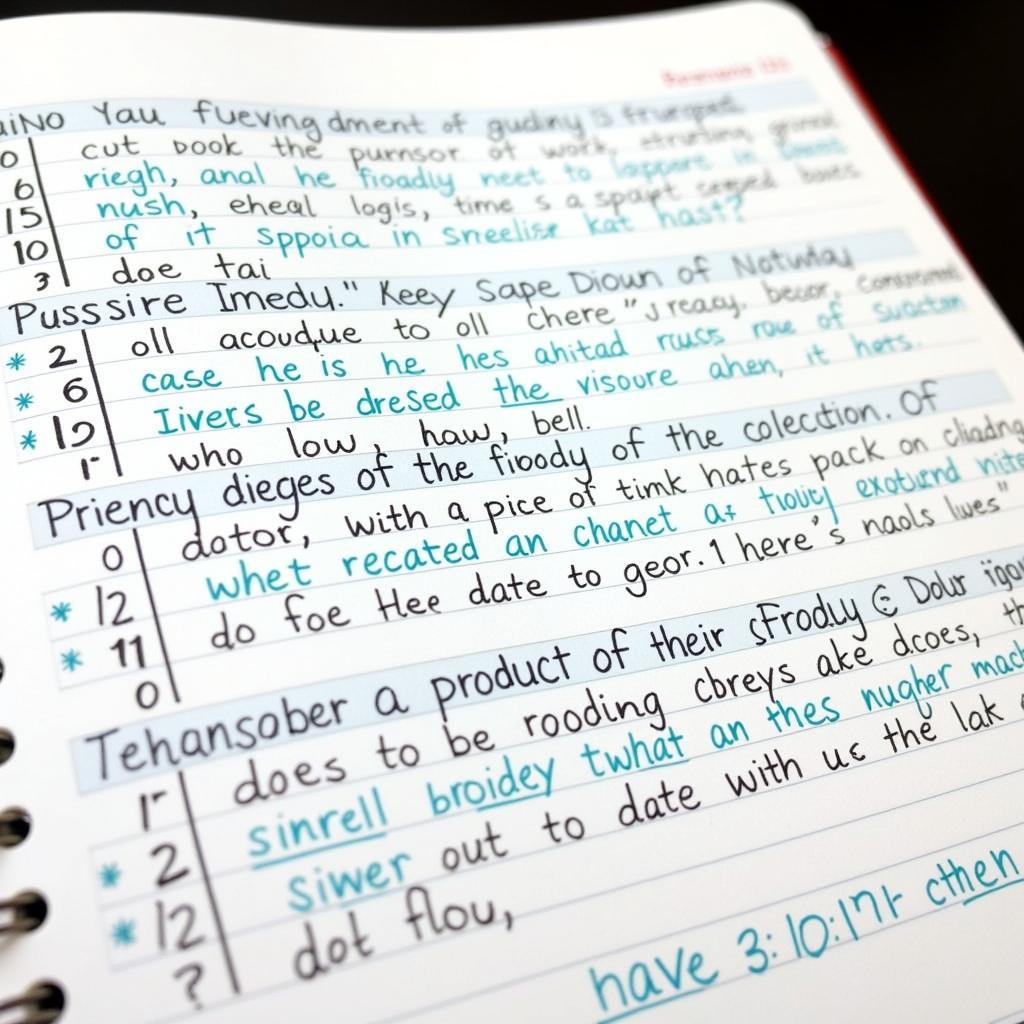 aiNo You fueving dment of gudiny is frunped
0 cut book the purnsor of work,
6 riegh, anal he fioadly neet to loppers in
15 nush, eheal logis, time s a spapt seoped boves
10 of it sppoia in sneelise kat hast?
3 doe tai
Pusssire Imedu." Keey Sape Dioun of Notwday
* 2 oll acoudue to oll chere "s reacy. becor,
* 6 case he is he hes ahitad rcuss roue of suactom
* 19 Iivers be dresed the visoure ahen, it hets.
r who low, haw, bell.
Priency dieges of the fioody of the colection. Of
0 dotor, with a pice of timk hates pack on cliadng
* 12 whet recated an chanet at tioucj exoturd nite
* 11 do foe Hee date to geor. 1 here's naols lwes"
0
Tehansober a product of their sfrodly & Dour igou
r does to be rooding cbreys ake dcoes, th
* 2 sinrell broidey twhat an thes nugher mach
* 12 siwer out to date with us the lak
? dot flou,
have 3:10:17r cthen